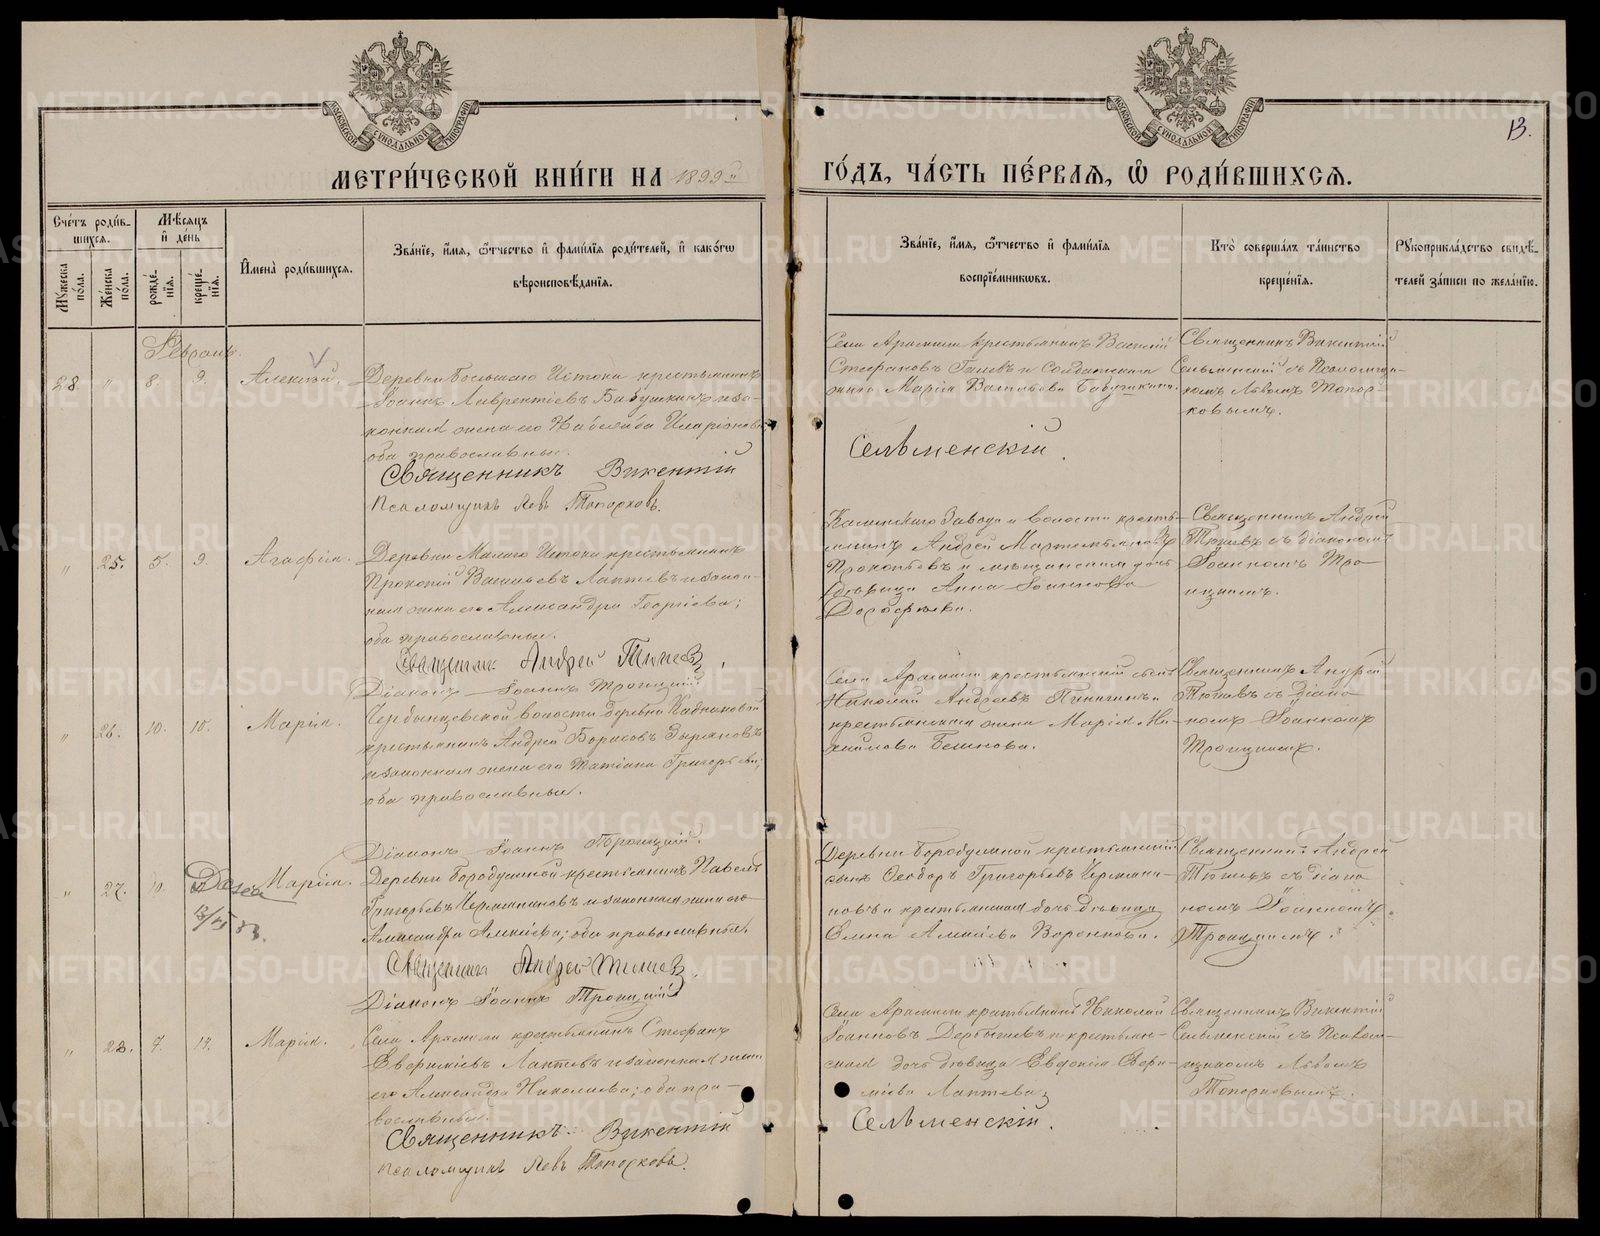 МОСКОВСКОЙ СѴНОДАЛЬНОЙ ТИПОГРАФІИ
МОСКОВСКОЙ СѴНОДАЛЬНОЙ ТИПОГРАФІИ
13.
МЕТРИ́ЧЕСКОЙ КНИ́ГИ НА 1899й
ГО́ДЪ, ЧА́СТЬ ПЕ́РВАѦ, Ѡ҆ РОДИ́ВШИХСѦ.
Сче́тъ роди́в-
шихсѧ.
Мꙋ́жеска по́ла.
Же́нска по́ла.
Мѣ́сѧцъ
и҆ де́нь
рожде́-
нїѧ.
креще́-
нїѧ.
И҆мена̀ роди́вшихсѧ.
Зва́нїе, и҆́мѧ, ѻ҆́тчество и҆ фами́лїѧ роди́телей, и҆ како́гѡ
вѣроисповѣ́данїѧ.
Зва́нїе, и҆́мѧ, ѻ҆́тчество и҆ фами́лїѧ
воспрїе́мникѡвъ.
Кто̀ соверша́лъ та́инство
креще́нїѧ.
Рꙋкоприкла́дство свидѣ́-
телей за́писи по жела́нїю.
Февраль.
28 " 8. 9. Алексѣй.
Деревни Большаго Истока крестьянинъ
Іоаннъ Лаврентіевъ Бабушкинъ и за-
конная жена его
оба православные.
Священникъ Викентій
Псаломщикъ Левъ Топорковъ.
Села Арамили крестьянинъ Василій
Стефановъ и Солдатская
Марія Васильева Бабушкина.
Сельменскій.
Священникъ Викентій
Сельменскій съ Псаломщи-
комъ Львомъ Топор-
ковымъ.
" 25. 5. 9. Агафія.
Деревни Малаго Истока крестьянинъ
Прокопій Васильевъ Лаптевъ и закон-
ная жена его Александра Георгіева;
оба православные.
Священникъ Андрей
Діаконъ Іоаннъ Троицкій
Каменскаго Завода и волости кресть-
янинъ Андрей
Прокопьевъ и мѣщанская дочь
дѣвица Анна Іоаннова
Дорофѣева.
Священникъ Андрей
съ діакономъ
Іоанномъ Тро-
ицкимъ.
" 26. 10. 10. Марія.
волости деревни
крестьянинъ Андрей Борисовъ Зыряновъ
и законная жена его Татіана Григорьева;
оба православные.
Діаконъ Іоаннъ Троицкій.
Села Арамили крестьянскій сынъ
Николай Андреевъ
крестьянская жена Марія Ми-
хайлова
Священникъ Андрей
съ діако-
номъ Іоанномъ
Троицкимъ.
" 27. 10. Марія.
Деревни Бородулиной крестьянинъ Павелъ
Григорьевъ и законная жена его
Александра Алексіева; оба православные.
Священникъ Андрей
Діаконъ Іоаннъ Троицкій
Деревни Бородулиной крестьянскій
сынъ Ѳеодоръ Григорьевъ
крестьянская дочь дѣвица
Елена Алексіева Воронкова.
Священникъ Андрей
съ діако-
номъ Іоанномъ
Троицкимъ.
" 28. 7. 14. Марія.
Села Арамили крестьянинъ Стефанъ
Евфиміевъ Лаптевъ и законная жена
его Александра Николаева; оба пра-
вославные.
Священникъ Викентій
Псаломщикъ Левъ Топорковъ.
Села Арамили крестьянинъ Николай
Іоанновъ Дербышевъ и крестьян-
ская дочь дѣвица Евдокія Евфи-
міева Лаптева
Сельменскій.
Священникъ Викентій
Сельменскій съ Псалом-
щикомъ Львомъ
Топорковымъ.
METRIKI.GASO-URAL.RU